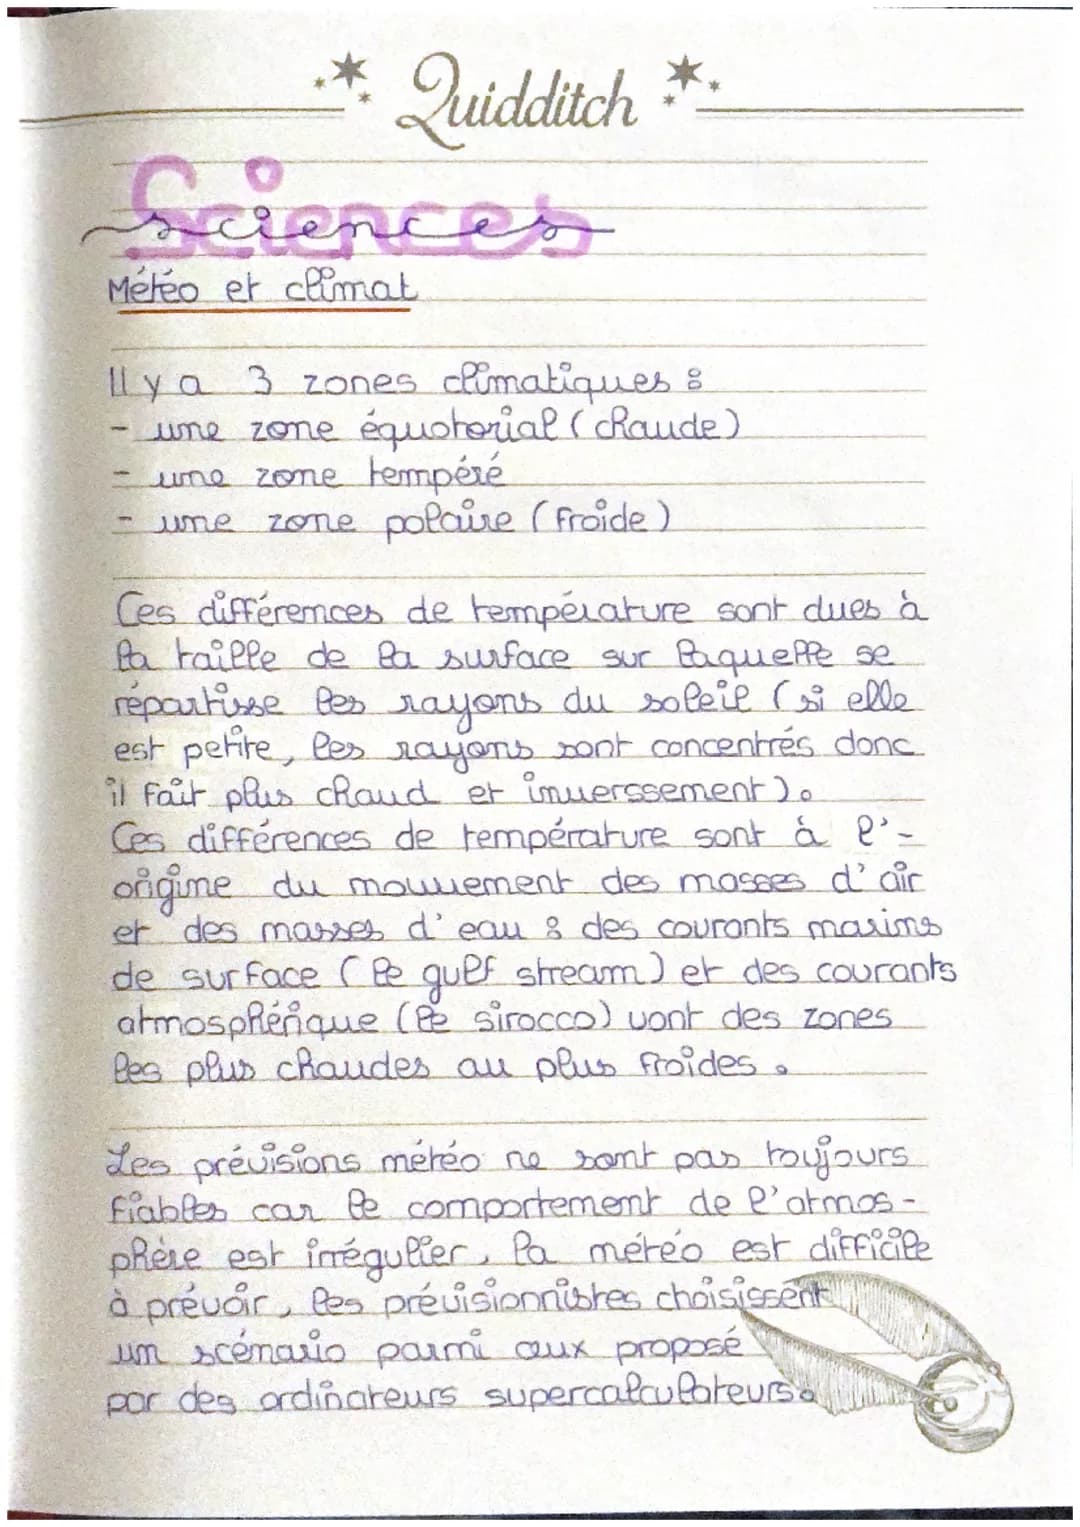 Quidditch
Sciences
sciences
Météo et climat
Il y a 3 zones climatiques :
- une zone équatorial (chaude)
- une zone tempéré
- une zone polaire (froide)
Ces différences de température sont dues à
la taille de la surface sur laquelle se
répartisse les rayons du soleil (si elle
est petite, les rayons sont concentrés donc
il fait plus chaud et inverssement).
Ces différences de température sont à l'-
origine du mouvement des masses d'air
et des masses d'eau : des courants marins
de surface (le gulf stream) et des courants
atmosphérique (le sirocco) vont des zones
les plus chaudes au plus froides.
Les prévisions météo ne sont pas toujours
fiables car le comportement de l'atmos-
phère est irrégulier, la météo est difficile
à prévoir, les prévisionnistes choisissent
un scénario parmi ceux proposé
par des ordinateurs supercalculateurs.